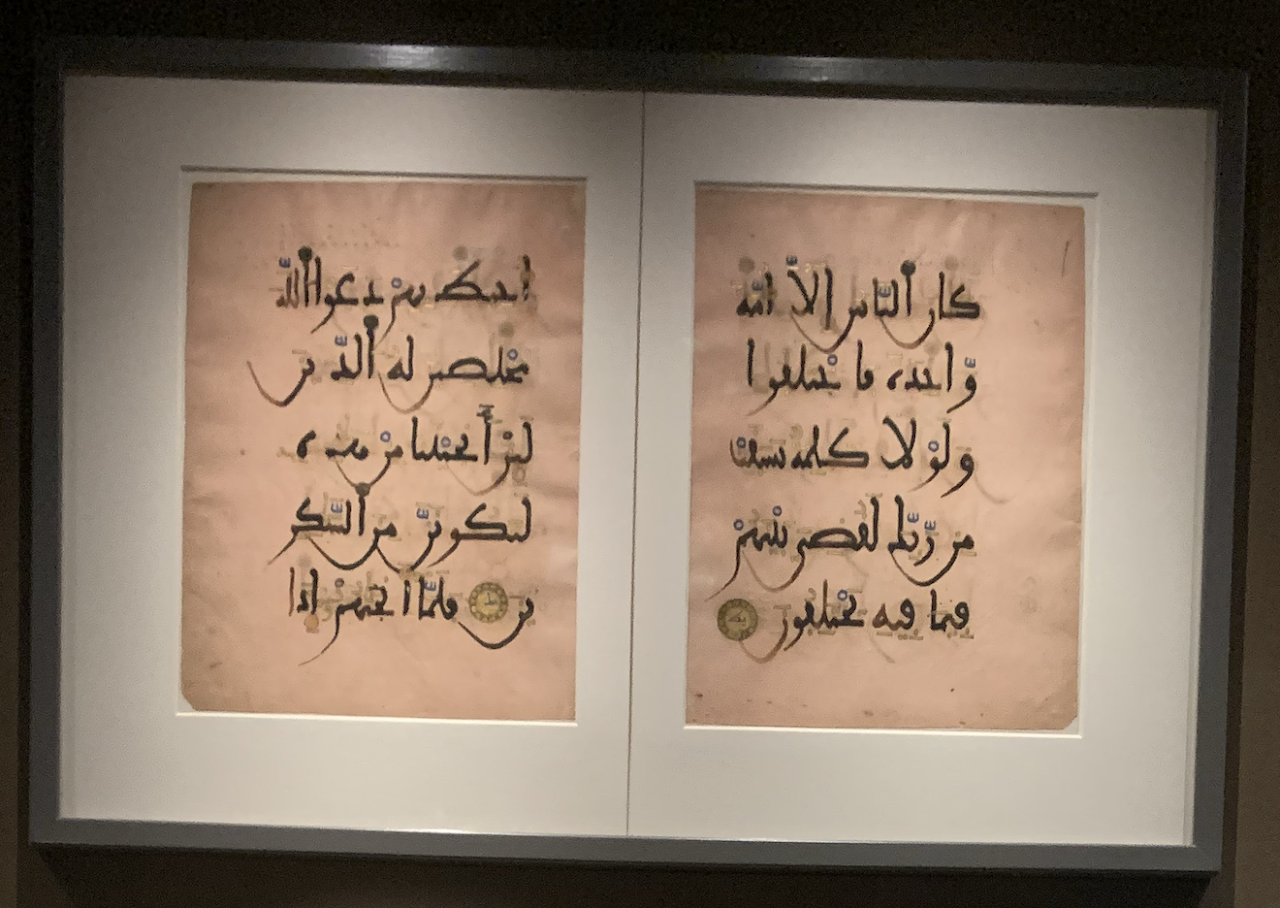 كان ٱلنَّاس إلَّا أمَّه
وَّاحده فاْختلفوا
ولوْلا كلمه سبقتْ
من رَّبّك لقضى بيْنهمْ
فيما فيه يخْتلفون
احيط بهمْ دعوا ٱللَّه
مخْلصين له ٱلدّين
لئنْ أنجيْتنا منْ هذه
لنكوننَّ من ٱلشَّكر
ين فلمَّا أنجيهمْ إذا